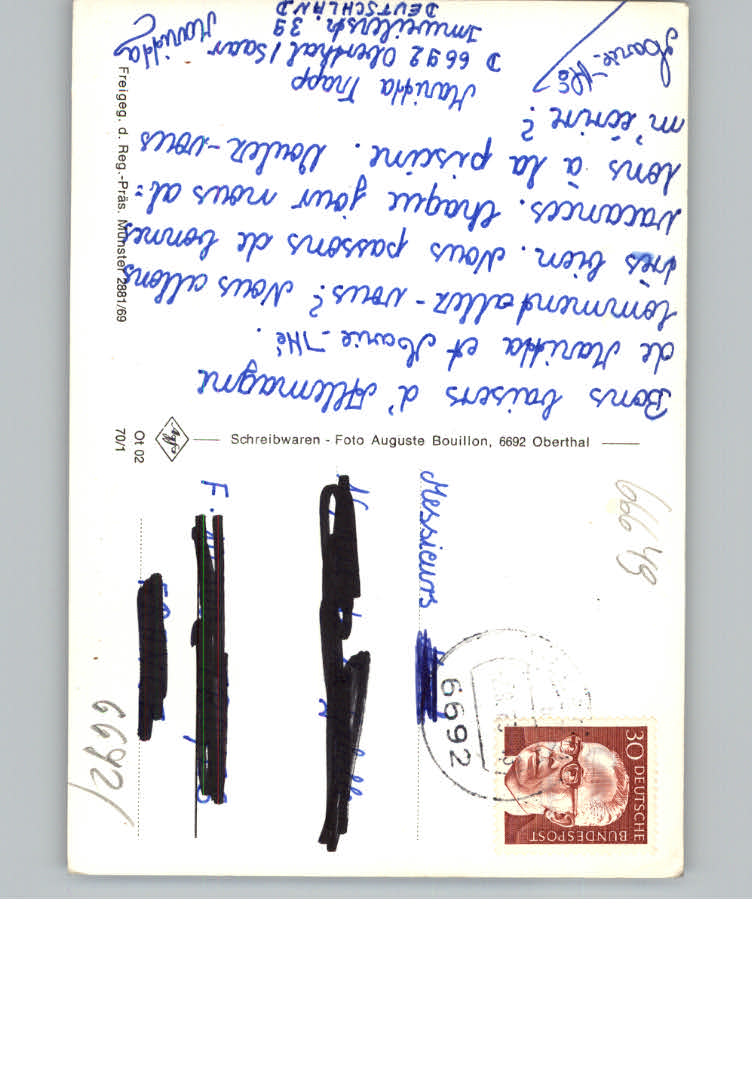 Bons baisers d'Allemagne
de Maritta et Marie-Thé.
Comment allez-vous? Nous allons
très bien. Nous passons de bonnes
vacances. Chaque jour nous al=
lons à la piscine. Voulez-vous
m'écrire?
Maritta Trapp
D 6692 Oberthal/Saar
Imweilerstr. 39
DEUTSCHLAND
Marie-Thé
Maritta
Freigeg. d. Reg.-Präs. Münster 2381/69
Schreibwaren - Foto Auguste Bouillon, 6692 Oberthal
Ot 02
70/1
Agfa
Messieurs
F.
6692
30 DEUTSCHE
BUNDESPOST
66649
6692/